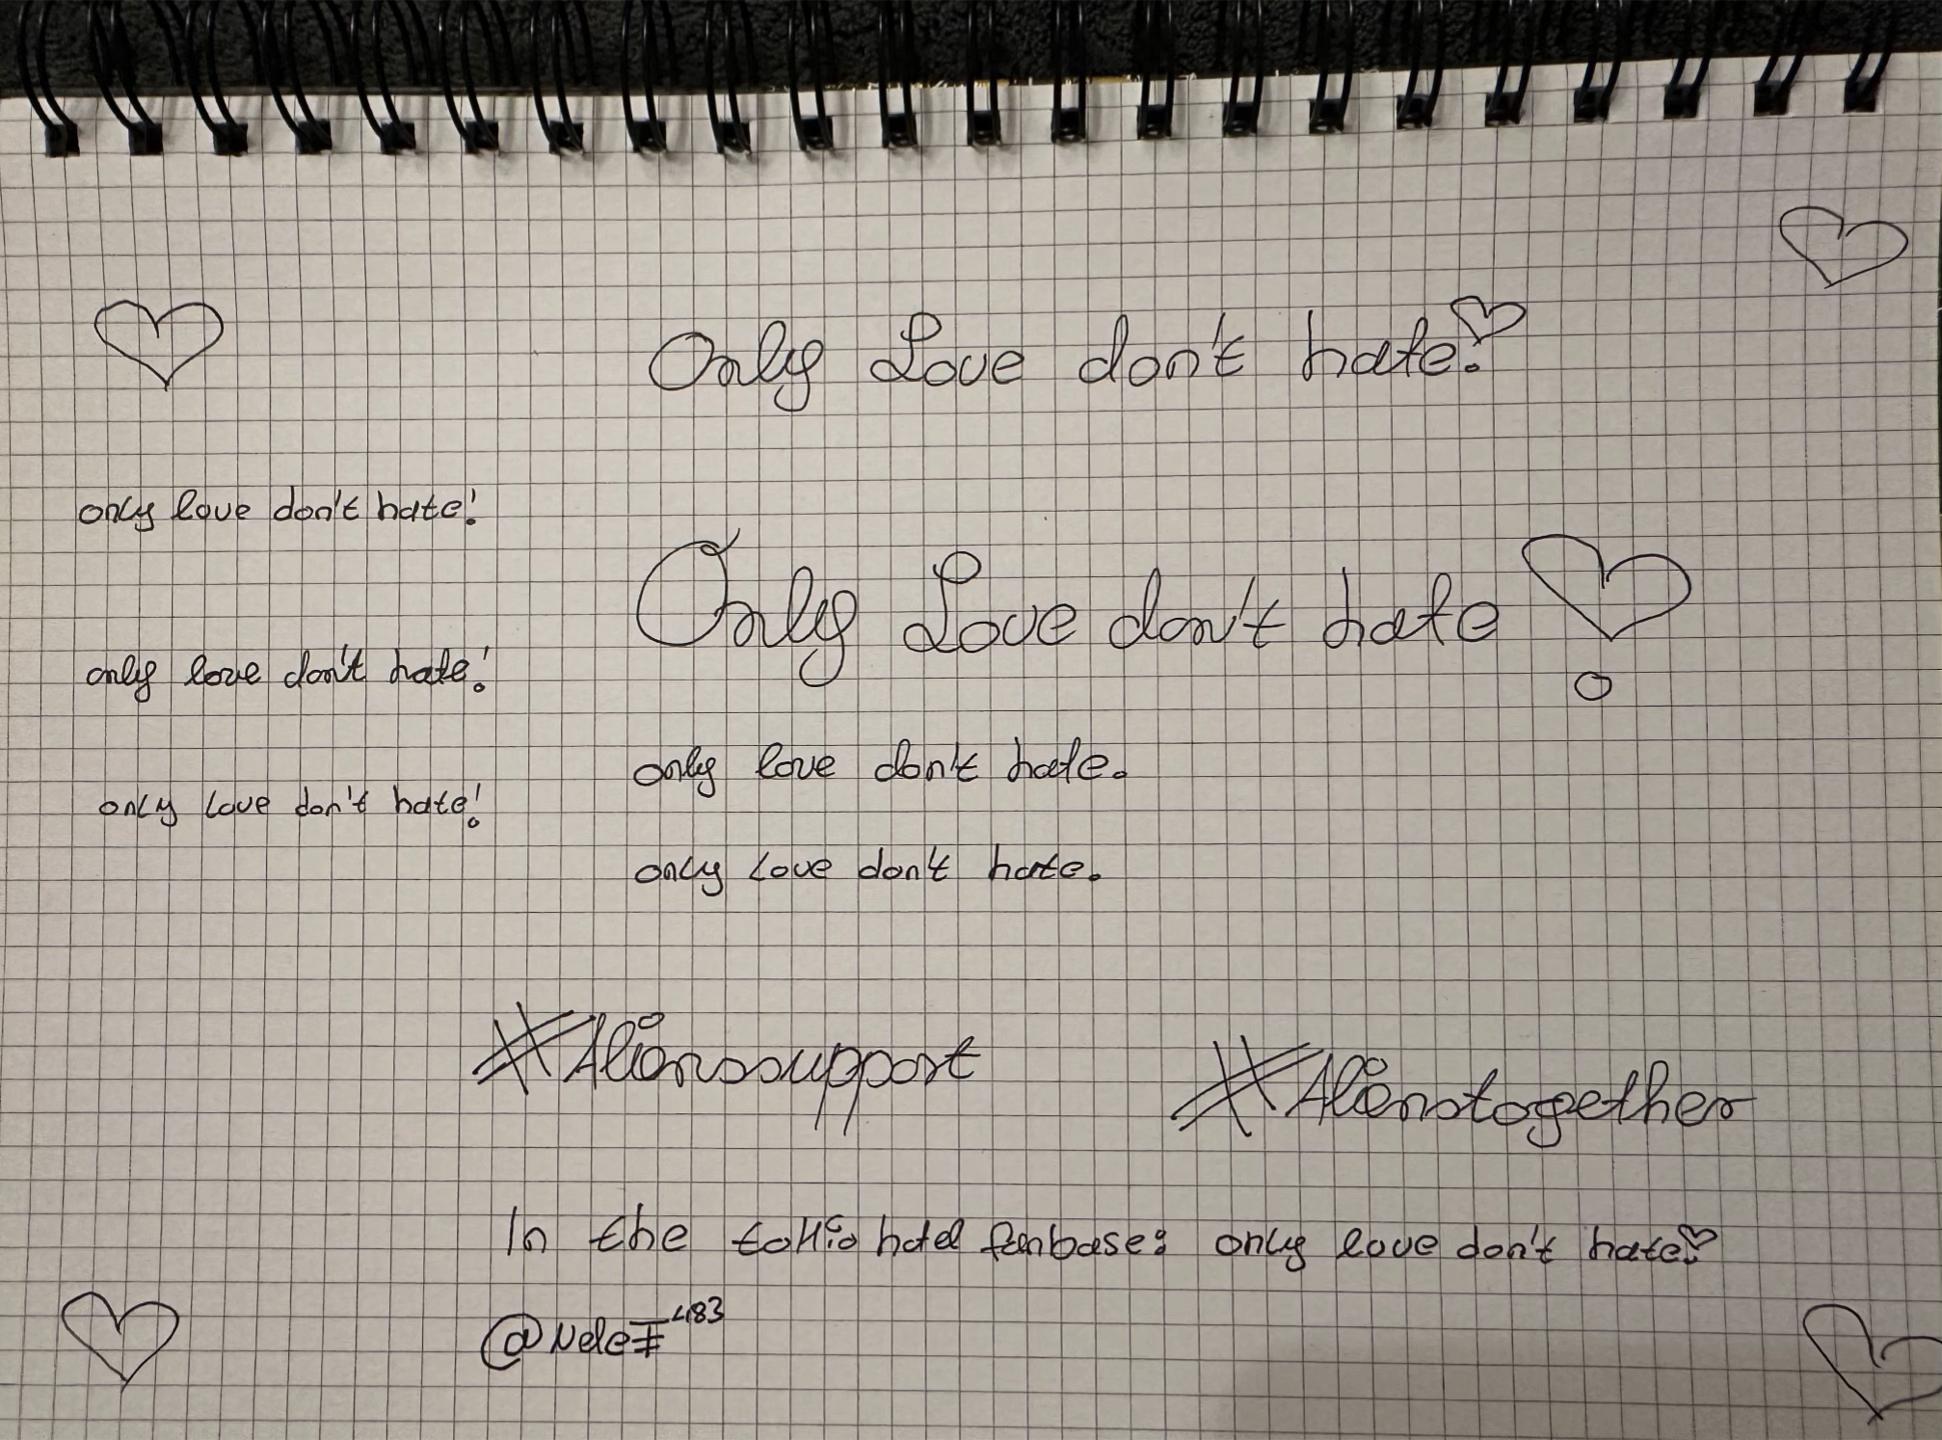 Only Love don't hate!
only love don't hate!
Only Love don't hate!
only love don't hate!
only love don't hate.
only love don't hate!
only love don't hate.
#Alienssupport
#Alienstogether
In the tokio hotel fanbase: only love don't hate!
@NeleF483